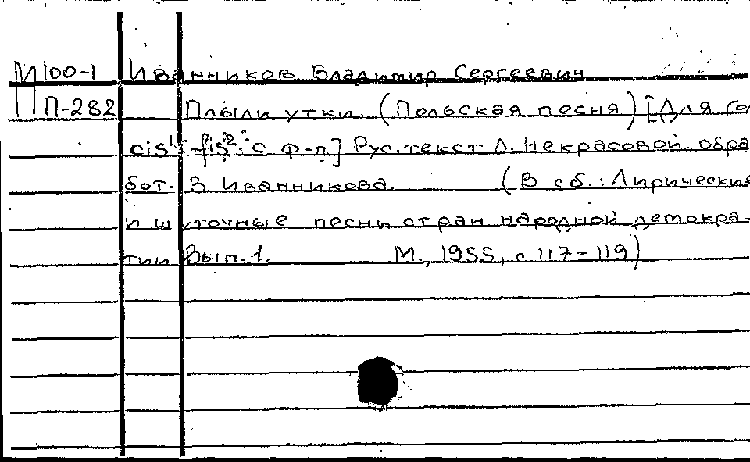 М100-1 Иванников Владимир Сергеевич
П-282 Плыли утки (Польская песня) [Для го
cis¹-fis²: с ф-п] Рус. текст Л. Некрасовой обра
бот. В Иванникова. (В сб.: Лирические
и шуточные песни стран народной демокра-
тии Вып. 1. М., 1955, с. 117-119)